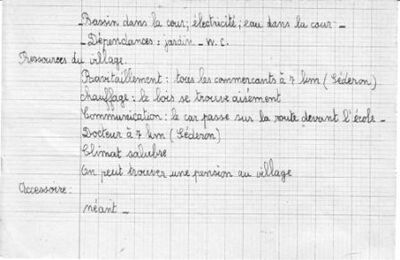 _Bassin dans la cour; électricité; eau dans la cour_
_ Dépendances: jardin_ W.C.
Ressources du village:
Ravitaillement: tous les commerçants à 7 km (Séderon)
Chauffage: le bois se trouve aisément
Communication: le car passe sur la route devant l'école_
Docteur à 7 km (Séderon)
Climat salubre
On peut trouver une pension au village
Accessoire:
néant_